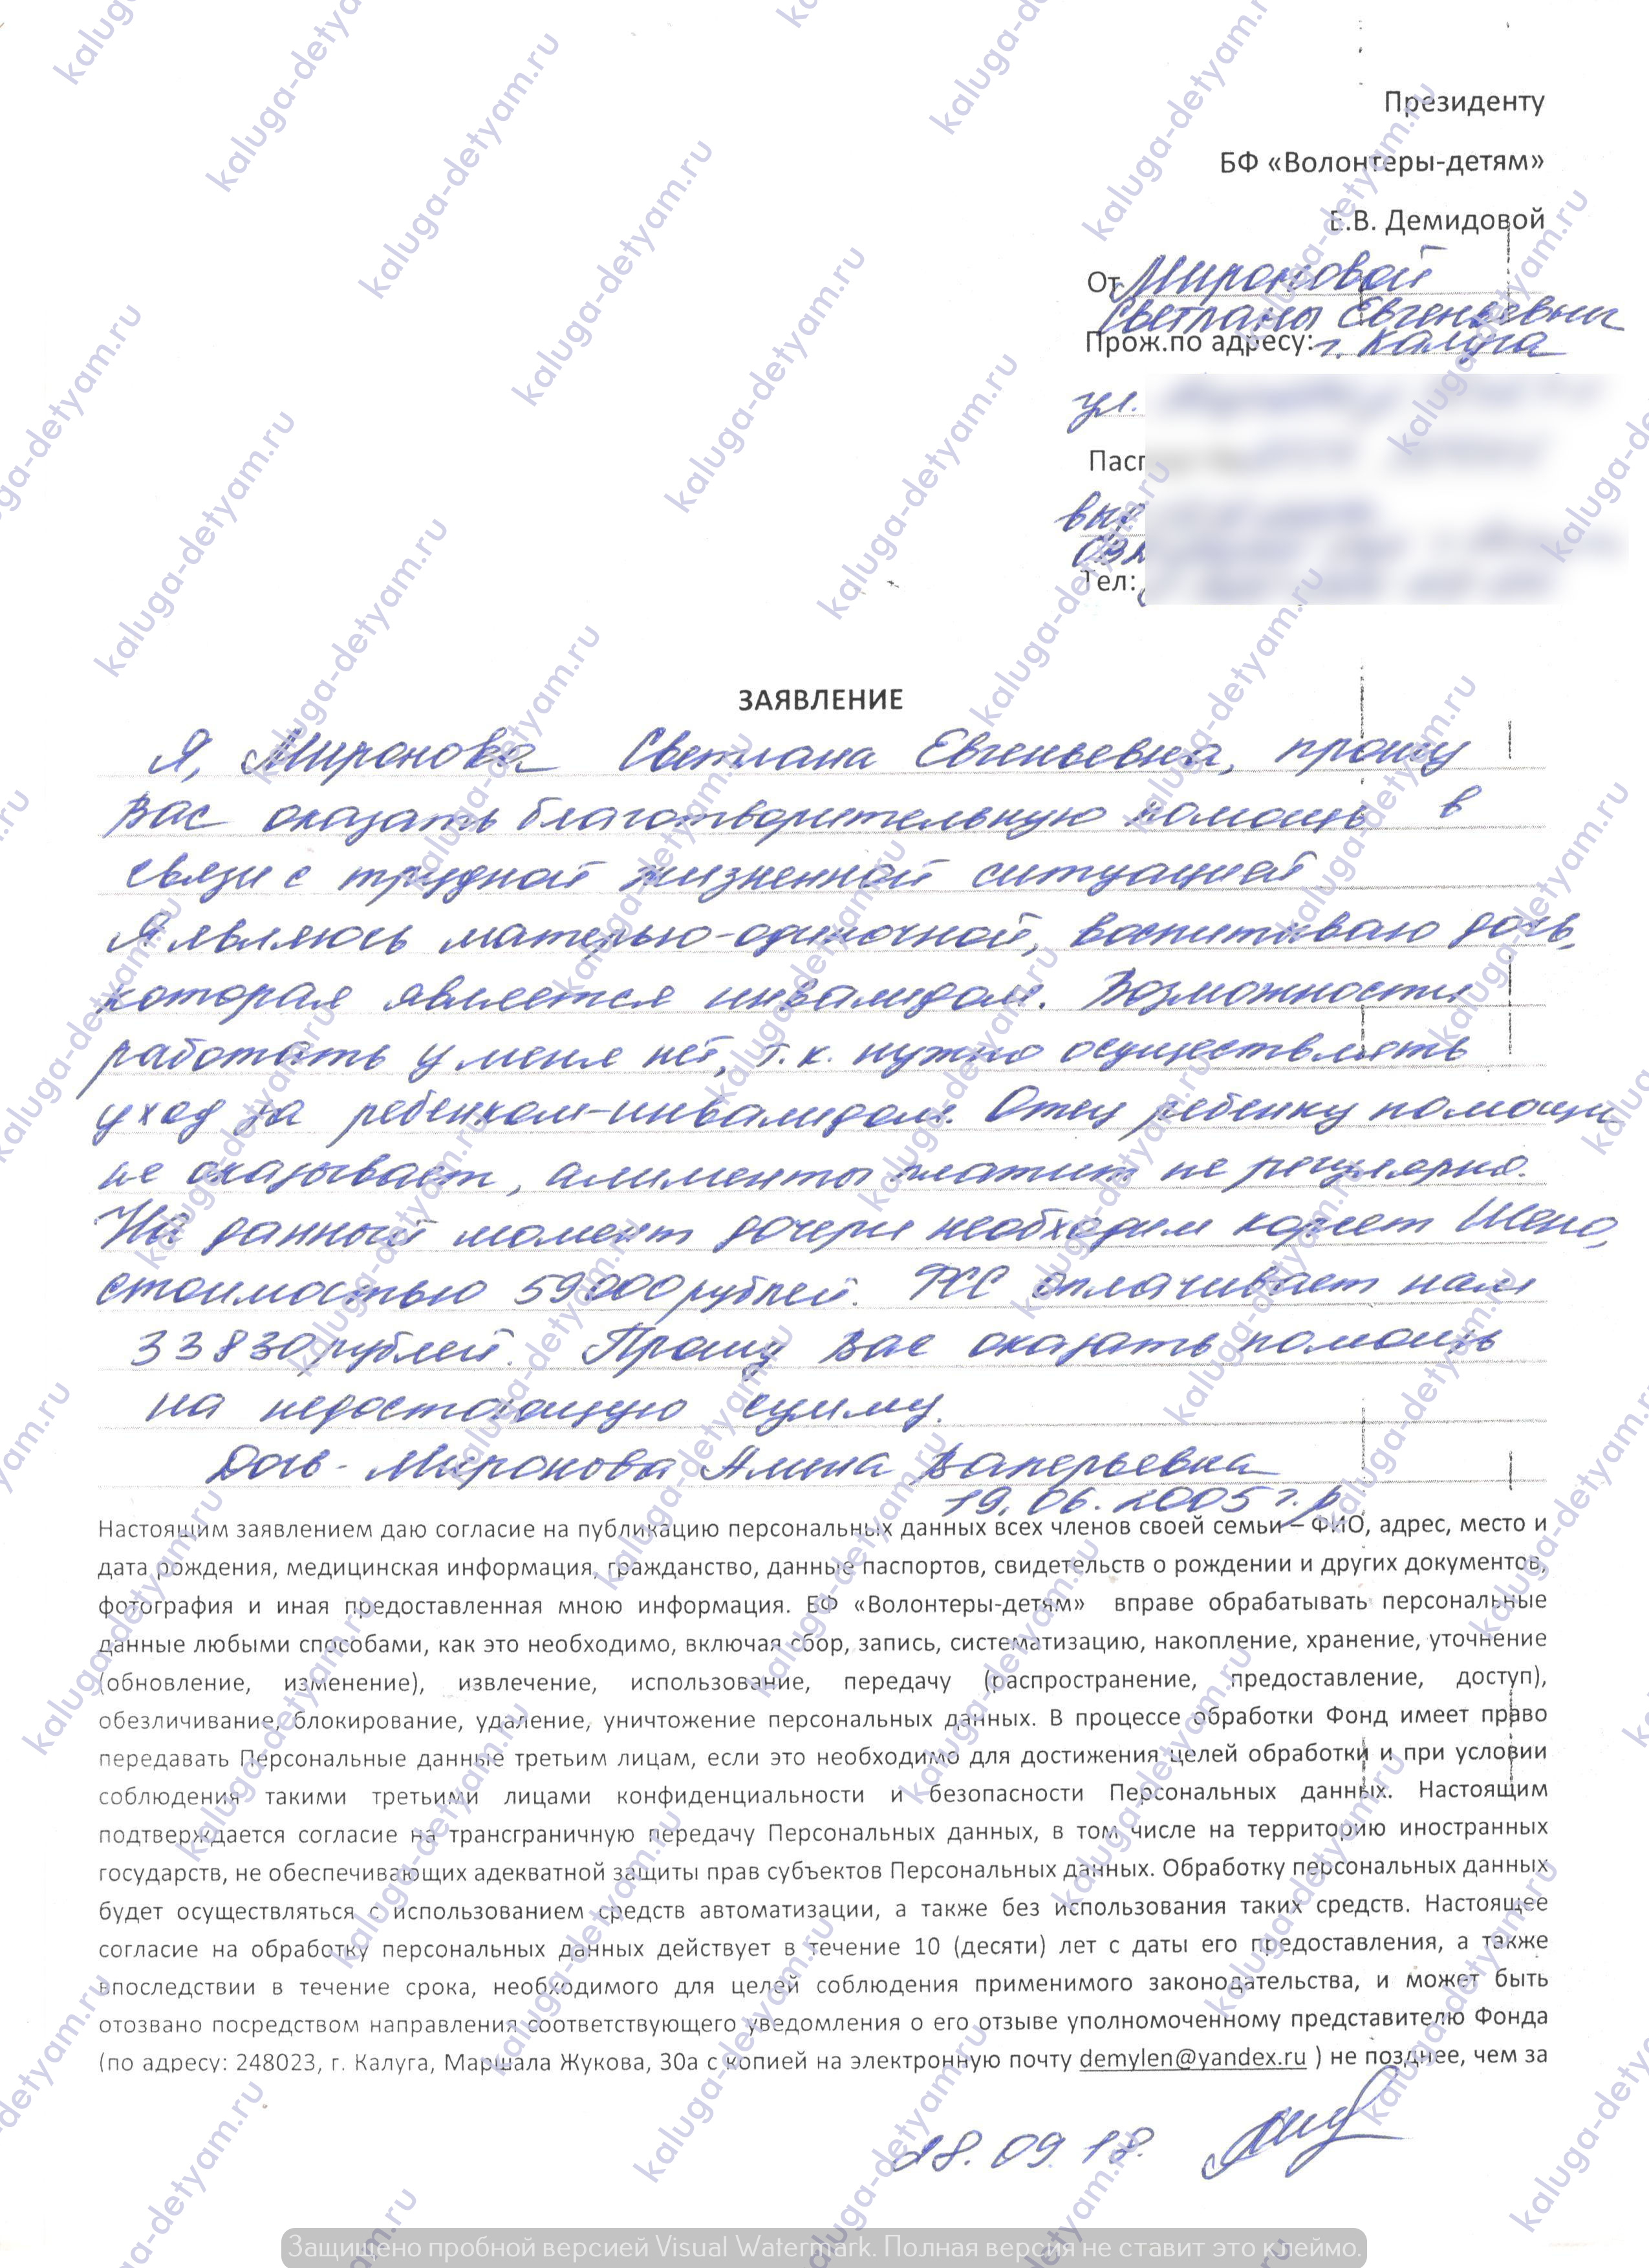 Президенту
БФ «Волонтеры-детям»
Е.В. Демидовой
От Мироновой
Светланы Евгеньевны
Прож.по адресу: г. Калуга
ул.
Пасп
выд
ОВ
Тел:
ЗАЯВЛЕНИЕ
Я, Миронова Светлана Евгеньевна, прошу
Вас оказать благотворительную помощь в
связи с трудной жизненной ситуацией
Я являюсь матерью-одиночкой, воспитываю дочь,
которая является инвалидом. Возможности
работать у меня нет, т.к. нужно осуществлять
уход за ребенком-инвалидом. Отец ребенку помощи
не оказывает, алименты платит не регулярно.
На данный момент дочери необходим корсет Шено,
стоимостью 59000 рублей. ФСС оплачивает нам
33830 рублей. Прошу Вас оказать помощь
на недостающую сумму.
Дочь - Миронова Алина Валерьевна
19.06.2005 г.р
Настоящим заявлением даю согласие на публикацию персональных данных всех членов своей семьи – ФИО, адрес, место и
дата рождения, медицинская информация, гражданство, данные паспортов, свидетельств о рождении и других документов,
фотография и иная предоставленная мною информация. БФ «Волонтеры-детям» вправе обрабатывать персональные
данные любыми способами, как это необходимо, включая сбор, запись, систематизацию, накопление, хранение, уточнение
(обновление, изменение), извлечение, использование, передачу (распространение, предоставление, доступ),
обезличивание, блокирование, удаление, уничтожение персональных данных. В процессе обработки Фонд имеет право
передавать Персональные данные третьим лицам, если это необходимо для достижения целей обработки и при условии
соблюдения такими третьими лицами конфиденциальности и безопасности Персональных данных. Настоящим
подтверждается согласие на трансграничную передачу Персональных данных, в том числе на территорию иностранных
государств, не обеспечивающих адекватной защиты прав субъектов Персональных данных. Обработку персональных данных
будет осуществляться с использованием средств автоматизации, а также без использования таких средств. Настоящее
согласие на обработку персональных данных действует в течение 10 (десяти) лет с даты его предоставления, а также
впоследствии в течение срока, необходимого для целей соблюдения применимого законодательства, и может быть
отозвано посредством направления соответствующего уведомления о его отзыве уполномоченному представителю Фонда
(по адресу: 248023, г. Калуга, Маршала Жукова, 30а с копией на электронную почту demylen@yandex.ru ) не позднее, чем за
28.09.18.
Защищено пробной версией Visual Watermark. Полная версия не ставит это клеймо.
kaluga-detyam.ru